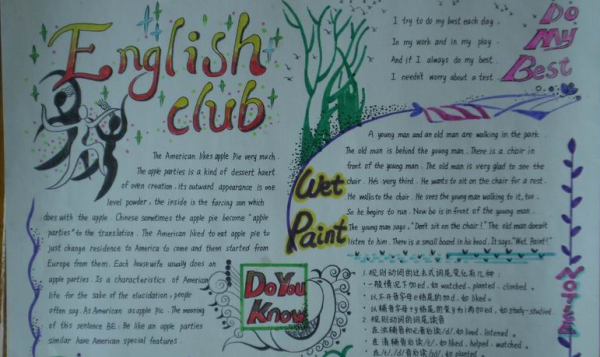 English
club
The American likes apple Pie very much.
The apple parties is a kind of dessert haert
of oven creation. its outward appearance is one
level powder. the inside is the farcing son which
does with the apple. Chinese sometimes the apple pie become "apple
parties" to the translation. The American liked to eat apple pie to
just change residence to America to come and then started from
Europe from them. Each housewife usually does an
apple parties. Is a characteristics of American
life for the sake of the elucidation. people
often say. As American as apple pie. The meaning
of this sentence BE: Be like an apple parties
similar have American special features
I try to do my best each day.
In my work and in my play.
And if I always do my best.
I needn't worry about a test.
Do
My
Best
Wet
Paint
A young man and an old man are walking in the park.
The old man is behind the young man. There is a chair in
front of the young man. The old man is very glad to see the
chair. He's very third. He wants to sit on the chair for a rest.
He walks to the chair. He sees the young man walking to it, too.
So he begins to run. Now he is in front of the young man.
The young man says, "Don't sit on the chair!" The old man doesn't
listen to him. There is a small board in his hand. It says, "Wet Paint!"
Do You
Know
1. 规则动词的过去式词尾变化有几种:
·一般情况下加ed, 如 watched, planted, climbed.
·以不发音字母e结尾的加d, 如 liked.
·以辅音字母+y结尾的变y为i再加ed, 如 study-studied.
2. 规则动词的词尾读音
·在浊辅音和元音后读/d/, 如 lived, listened.
·在清辅音后读/t/, 如 liked, helped, watched.
·在/t/, /d/音后读/id/, 如 planted.